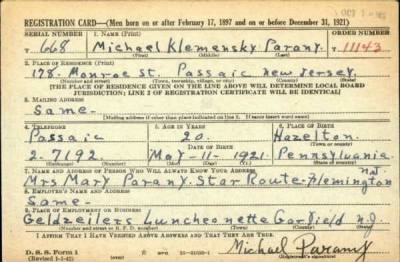 OCT 1
REGISTRATION CARD—(Men born on or after February 17, 1897 and on or before December 31, 1921)
SERIAL NUMBER 1. NAME (Print) ORDER NUMBER
T 668 Michael Klemensky Parany T 11143
(First) (Middle) (Last)
2. PLACE OF RESIDENCE (Print)
178. Monroe St. Passaic New Jersey.
(Number and street) (Town, township, village, or city) (County) (State)
[THE PLACE OF RESIDENCE GIVEN ON THE LINE ABOVE WILL DETERMINE LOCAL BOARD
JURISDICTION; LINE 2 OF REGISTRATION CERTIFICATE WILL BE IDENTICAL]
3. MAILING ADDRESS
Same.
[Mailing address if other than place indicated on line 2. If same insert word same]
4. TELEPHONE 5. AGE IN YEARS 6. PLACE OF BIRTH
Passaic 20. Hazelton.
DATE OF BIRTH (Town or county)
2-7192 May-11-1921. Pennsylvania.
(Exchange) (Number) (Mo.) (Day) (Yr.) (State or country)
7. NAME AND ADDRESS OF PERSON WHO WILL ALWAYS KNOW YOUR ADDRESS
Mrs Mary Parany. Star Route-Flemington NJ
8. EMPLOYER'S NAME AND ADDRESS
Same-
9. PLACE OF EMPLOYMENT OR BUSINESS
Geldzeilers Luncheonette Garfield N.J.
(Number and street or R. F. D. number) (Town) (County) (State)
I AFFIRM THAT I HAVE VERIFIED ABOVE ANSWERS AND THAT THEY ARE TRUE.
D. S. S. Form 1
(Revised 1-1-42) (over) Michael Parany
(Registrant's signature)